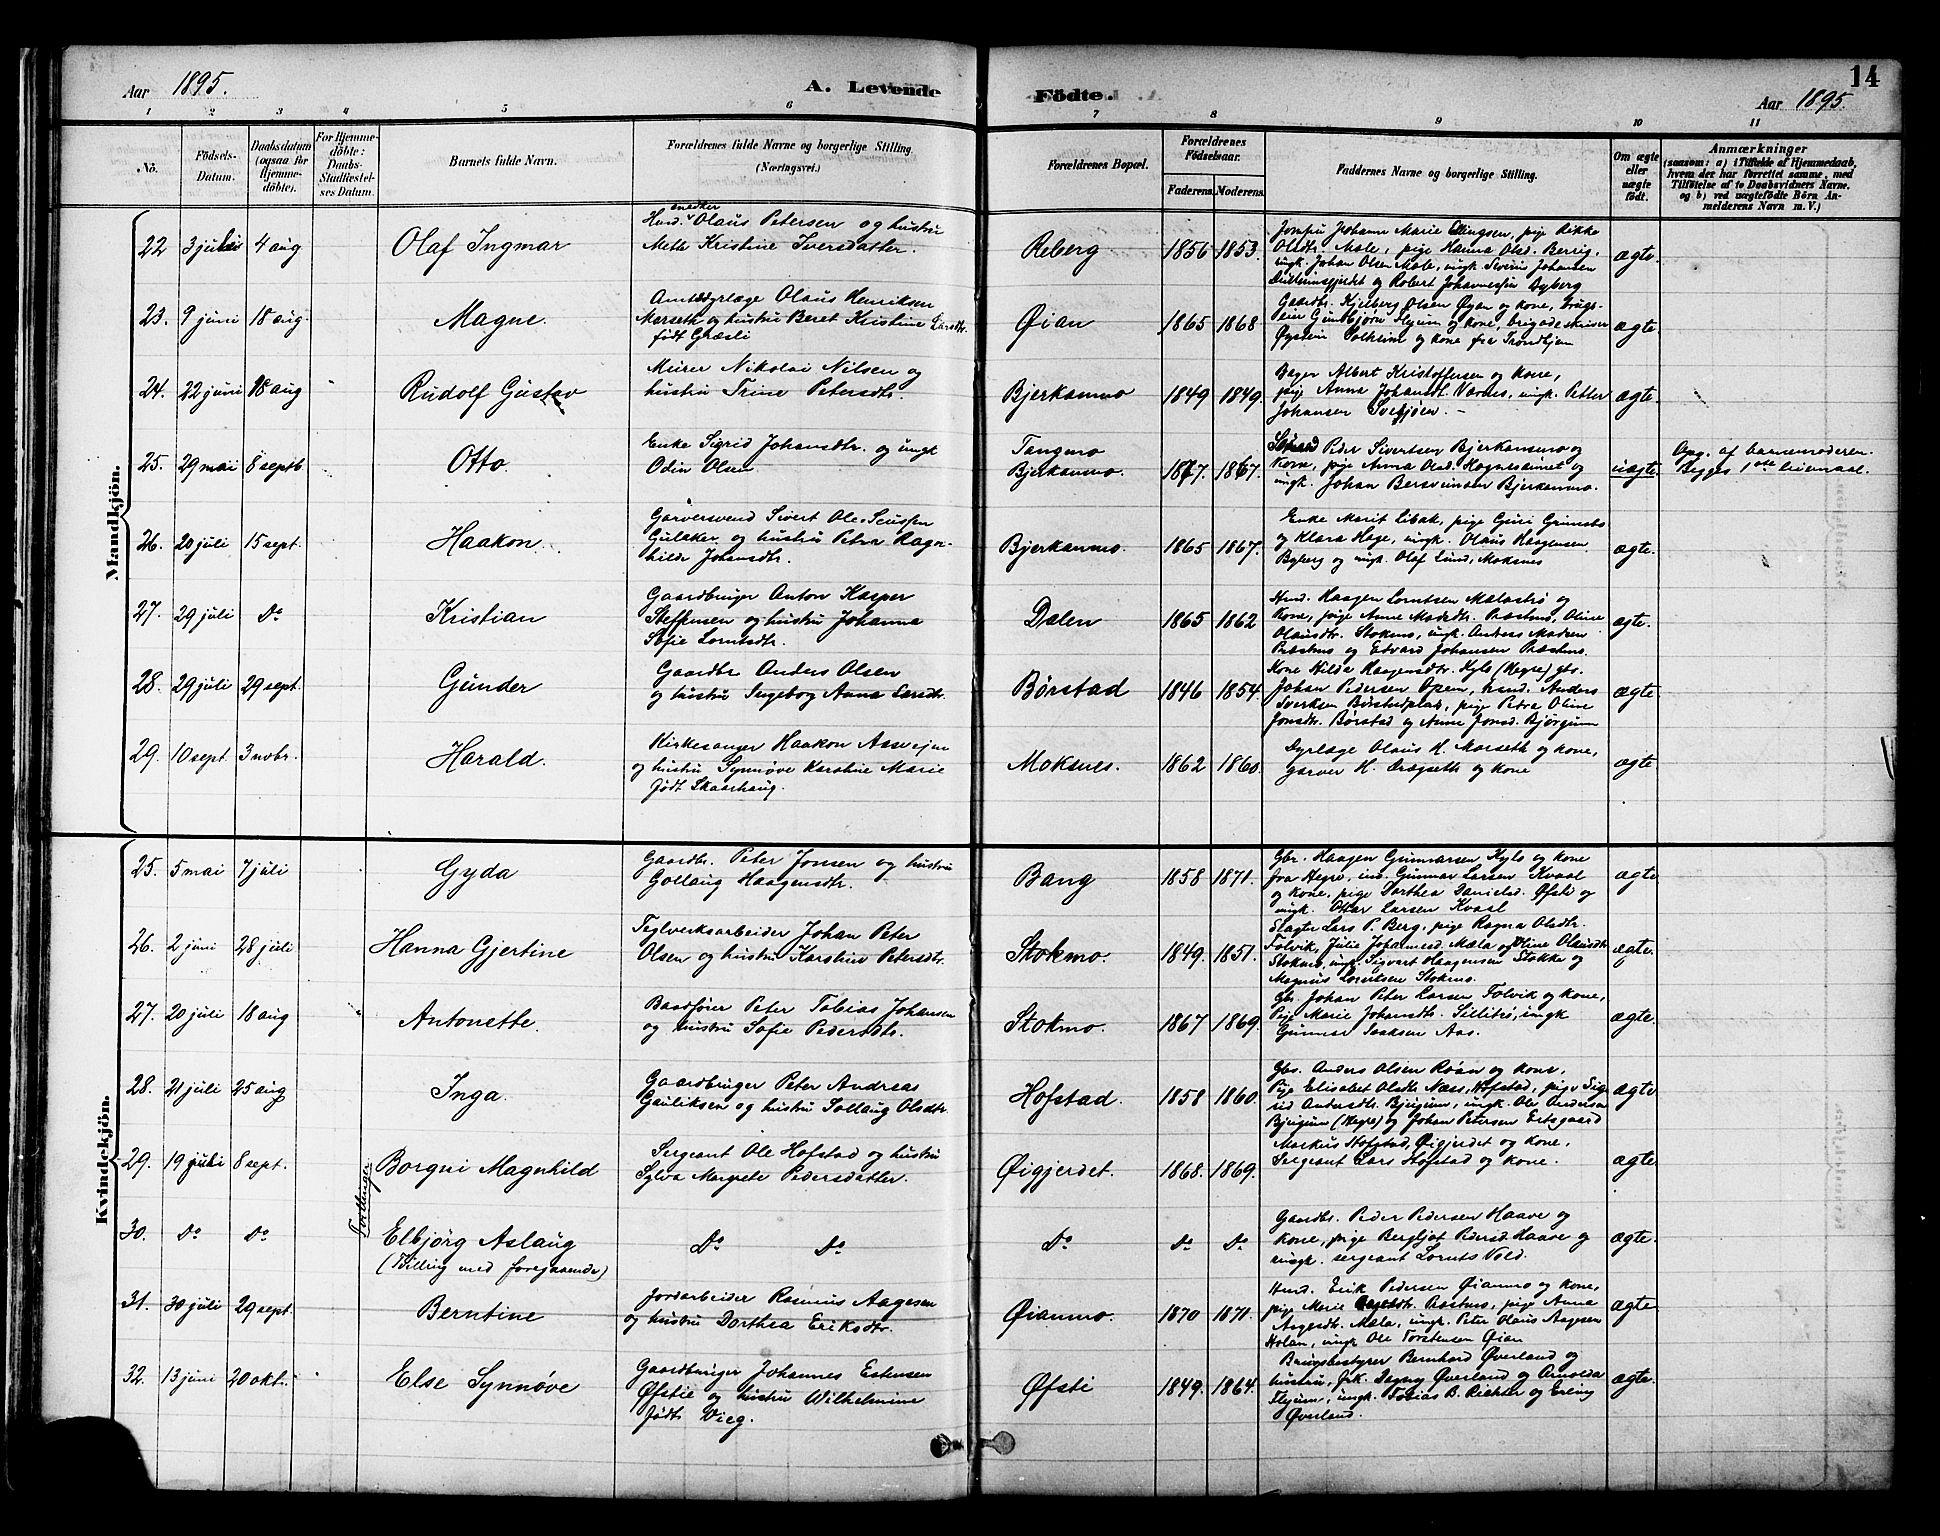 Aar 1895.
A. Levende
Födte.
14
Aar 1895.
1 2 3 4 5 6 7 8 9 10 11
No.
Födsels-Datum.
Daabsdatum (ogsaa for Hjemmedöbte).
For Hjemmedöbte: Daabs-Stadfæstelses Datum.
Barnets fulde Navn.
Forældrenes fulde Navne og borgerlige Stilling (Næringsvei.)
Forældrenes Bopæl.
Forældrenes Födselsaar.
Faderens. Moderens.
Faddernes Navne og borgerlige Stilling.
Om ægte eller uægte födt.
Anmærkninger
(saasom: a) i Tilfælde af Hjemmedaab, hvem der har forrettet samme, med Tilføielse af to Daabsvidners Navne, og b) ved uægtefödte Börn Anmelderens Navn m. V.)
Mandkjön.
22 3 juli 4 aug Olaf Ingmar
Husd. snedker Olaus Petersen og hustru
Meth Kristine Iversdatter.
Reberg 1856 1853.
Olsdtr. Mæle, pige Hanna Olsd. Berrig,
ungk. Johan Olsen Mæle, ungk. Severin Johansen
ægte.
23. 9 juni 18 aug. Magne.
Amtsdyrlæge Olaus Henriksen
Morseth og hustru Beret Kristine Larsdtr.
født Græsli
Øian 1865 1868
Gaardbr. Kjelberg Olsen Øyan og kone,
Øystein Solheim og kone fra Trondhjem
ægte.
24. 22 juni 18 aug Rudolf Gustav
Murer Nikolai Nilsen og
hustru Trine Petersdtr.
Bjerkanmo 1849 1849.
Bager Albert Kristoffersen og kone,
pige Anna Johansdt. Værnes, ungk. Petter
Johansen
ægte.
25. 29 mai 8 septb. Otto.
Enke Sigrid Johansdtr. og ungk
Odin Olsen.
Tangmo
Bjerkanmo. 1867. 1867.
Peder Sivertsen Bjerkansmo og
kone, pige Anna Olsd. Hognesaunet og
ungk. Johan Bersvensen Bjerkanmo.
uægte.
Opg. af barnemoderen.
Begges 1ste leiermaal.
26. 20 juli 15 sept. Haakon.
Garversvend Sivert Ole
Gulaker og hustru Petra Ragn-
hilds Johansdtr.
Bjerkanmo. 1865 1867.
Enke Marit Libak, pige Guri
og Klara Hage, ungk. Olaus Haagensen
Byberg og ungk. Olaf Lund, Moksnes
ægte.
27. 29 juli Do Kristian
Gaardbruger Anton Kasper
Steffensen og hustru Johanna
Sofie Lorntsdtr.
Dalen 1865 1862
Husd. Haagen Lorntsen Mælastrø og
kone, pige Anne Madsdtr. Præsthus, Oline
Olausdtr. Stokmo, ungk. Andreas Madsen
Præsthus og Edvard Johansen Præsthus.
ægte.
28. 29 juli 29 sept. Gunder
Gaardbr Anders Olsen
og hustru Ingeborg Anna Larsdt.
Børstad 1846 1854.
Kone Hilda Haagensdtr. Kylo (Hegre) gbr.
Johan Pedersen Open, husd. Anders
Sverksen Børstadplads, pige Petra Oline
Jonsdtr. Børstad og Anne Jonsd. Bjørgum
ægte.
29. 10 sept. 3 nvbr. Harald.
Kirkesanger Haakon Aasveien
og hustru Synnøve Karoline Marie
født Skaarhaug.
Moksnes. 1862 1860.
Dyrlæge Olaus H. Morseth og kone,
garver H. Drægseth og kone
ægte.
Kvindekjön.
25. 5 mai 7 juli Gyda
Gaardbr. Peter Jonsen og hustru
Gollaug Haagensdtr.
Bang 1858 1871.
Gbr. Haagen Gunnarsen Kylo og kone
fra Hegre, ins. Gunnar Larsen Kvaal
og kone, pige Dorthea Danielsd. Øfsti og
ungk. Ottar Larsen Kvaal
ægte.
26. 2 juni 28 juli Hanna Gjertine
Teglverksarbeider Johan Peter
Olsen og hustru Karstine Petersdtr.
Stokmo. 1849. 1851.
Slagter Lars P. Berg, pige Ragna Olsdtr.
Folvik, Julie Johannesd. Mæla og Oline Olausdtr.
Stokmo, ungk. Sigvart Haagensen Stokke og
Magnus Lorntsen Stokmo.
ægte.
27. 20 juli 18 aug Antonette.
Baadfører Peter Tobias Johansen
og hustru Sofie Pedersdtr.
Stokmo. 1867 1869.
Gbr. Johan Peter Larsen Folvik og kone,
Pige Marie Johansdtr. Sillitrø, ungk
Gunnar Isaksen Aas.
ægte.
28. 21 juli 25 aug Inga.
Gaardbruger Peter Andreas
Gauliksen og hustru Sollaug Olsdtr.
Hofstad. 1858 1860.
Gbr. Anders Olsen Roan og kone,
Pige Elisabet Olsdtr. Næss, Hofstad, pige Sig-
rid Andersdtr. Bjergum, ungk. Ole Andersen
Bjergum (Hegre) og Johan Petersen Eidsgaard
ægte
29. 19 juli 8 sept. Borgni Magnhild
Tvillinger
Sergeant Ole Hofstad og hustru
Sylva Margrete Pedersdatter.
Øigjerdet. 1868. 1869.
Markus Hofstad, Øigjerdet og kone.
Sergeant Lars Hofstad og kone.
ægte.
30. Do Do Elbjörg Aslaug
(Tvilling med foregaaende)
Do Do Do Do Do
Gaardbr. Peder Pedersen Haave og
kone, pige Bergljot Pedersd Haave og
ungk. sergeant Lornts Vold.
ægte.
31. 30 juli 29 sept. Berntine
Jordarbeider Rasmus Aagesen
og hustru Dorthea Eriksdtr.
Øianmo. 1870 1871.
Husd. Erik Pedersen Øianmo og kone,
pige Marie Præsthus, pige Anna
Aagesdtr. Mæla, ungk. Peter Olaus Aagesen
Holan, ungk Ole Torstensen Øian
ægte
32. 13 juni 20 okt. Else Synnøve
Gaardbruger Johannes Estensen
Øfstie og hustru Wilhelmine
født Vieg.
Øfsti 1849. 1864.
Brugsbestyrer Bernhard Øverland og
hustru, frk. Dagny Øverland og Arnolda
Flejum, ungk. Tobias B. Richter og Erling
Øverland.
ægte.